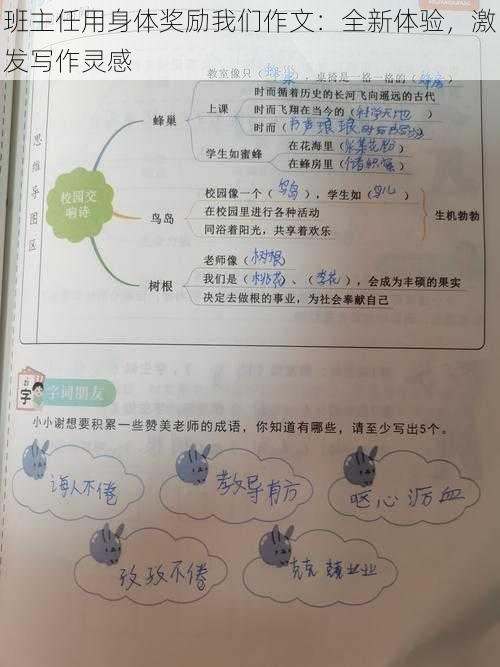 班主任用身体奖励我们作文：全新体验，激
发写作灵感
教室像只（蜂巢），桌椅是一格一格的（蜂房）
时而循着历史的长河飞向遥远的古代
上课
时而飞翔在当今的（科学天地）
蜂巢
时而（书声琅琅
在花海里（采集花粉）
学生如蜜蜂
在蜂房里（储积蜜）
思维导图区
校园交响诗
校园像一个（鸟岛），学生如（鸟儿）
鸟岛
在校园里进行各种活动
生机勃勃
同浴着阳光，共享着欢乐
老师像（树根）
树根
我们是（桃花）、（李花），会成为丰硕的果实
决定去做根的事业，为社会奉献自己
字
字词朋友
小小谢想要积累一些赞美老师的成语，你知道有哪些，请至少写出5个。
诲人不倦
教导有方
呕心沥血
孜孜不倦
兢兢业业